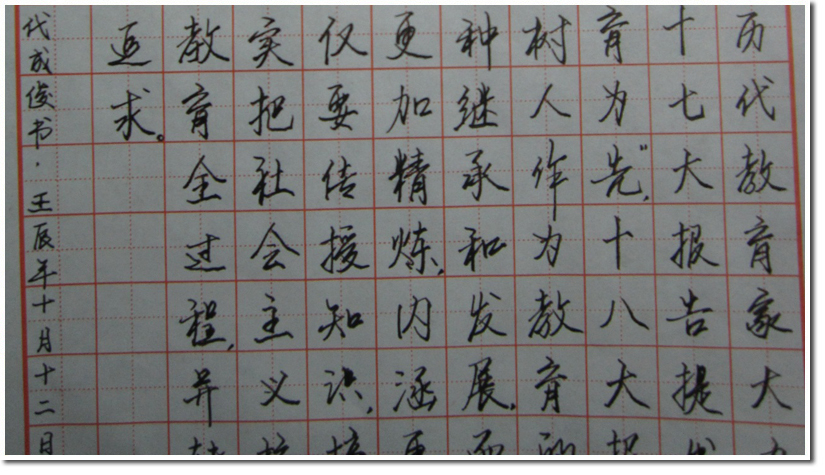 历代教育家大
十七大报告提
育为先”,十八大
树人作为教育
种继承和发展,
更加精炼,内涵
仅要传授知识,
实把社会主义
教育全过程,并
追求。
代成俊书.壬辰年十月十二日